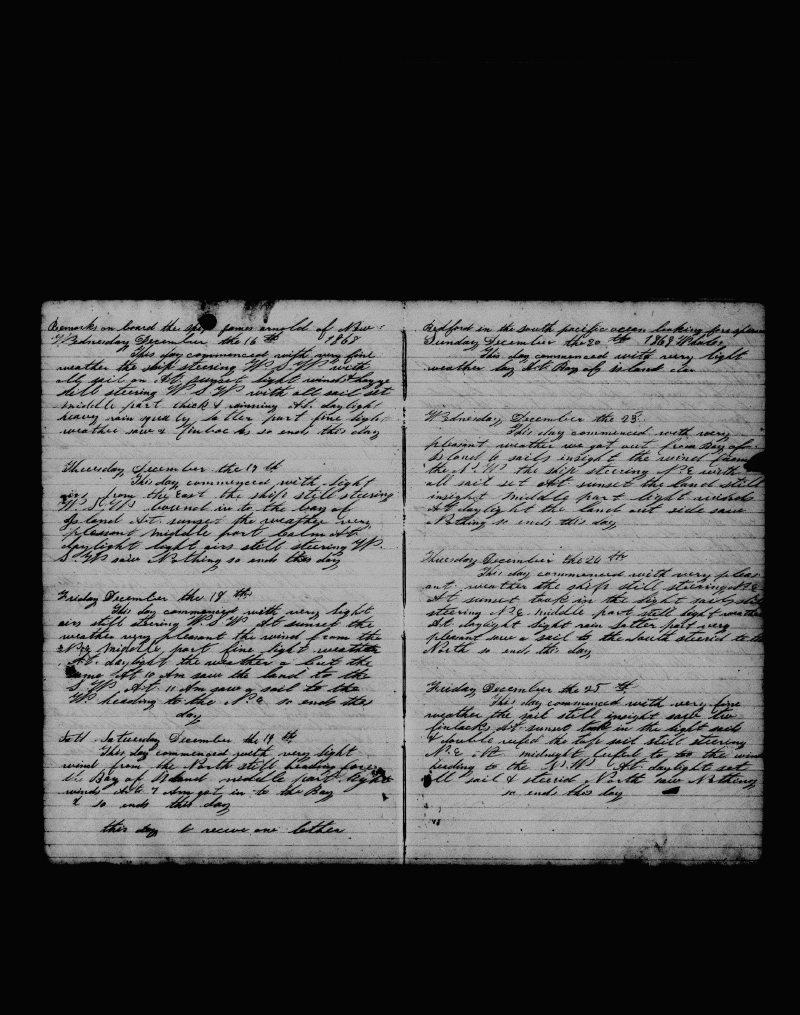 Remarks on board the ship James arnold of New
Wednesday December the 16 th 1868
This day commenced with very fine
weather the ship steering W S W with
all sail on At sunset light winds
still steering W S W with all sail set
middle part thick & raining At daylight
heavy rain latter part fine light
weather saw 2 finbacks so ends this day
Thursday December the 17 th
This day commenced with light
airs from the East the ship still steering
W S W bound in to the bay of
Island At sunset the weather very
pleasant middle part calm At
daylight light airs still steering W
S W saw Nothing so ends this day
Friday December the 18 th
This day commenced with very light
airs still steering W S W At sunset the
weather very pleasant the wind from the
N E middle part fine light weather
At daylight the weather the
same At 10 Am saw the land to the
S W At 11 Am saw a sail to the
W heading to the N E so ends this
day
Saturday December the 19 th
This day commenced with very light
wind from the North still heading for
the Bay of Island middle part light
winds At 7 Am got in to the Bay
& so ends this day
this day to receive one letther
Bedford in the south pacific ocean looking for sperm
Sunday December the 20 th 1868 Whales
This day commenced with very light
weather lay At Bay of island
Wednesday December the 23
This day commenced with very
pleasant weather we got out from Bay of
Island 2 sails insight the wind from
the N W the ship steering N E with
all sail set At sunset the land still
insight middle part light winds
At daylight the land out side saw
Nothing so ends this day
Thursday December the 24 th
This day commenced with very pleas
ant weather the ship still steering N E
At sunset took in the light sails still
steering N E middle part still light weather
At daylight light rain Latter part very
pleasant saw a sail to the South steerid to the
North so ends this day
Friday December the 25 th
This day commenced with very fine
weather the sail still insight saw two
finbacks At sunset took in the light sails
& double reefed the top sail still steering
N E At midnight to the wind
heeding to the N W At daylight set
all sail & steerid North saw Nothing
so ends this day